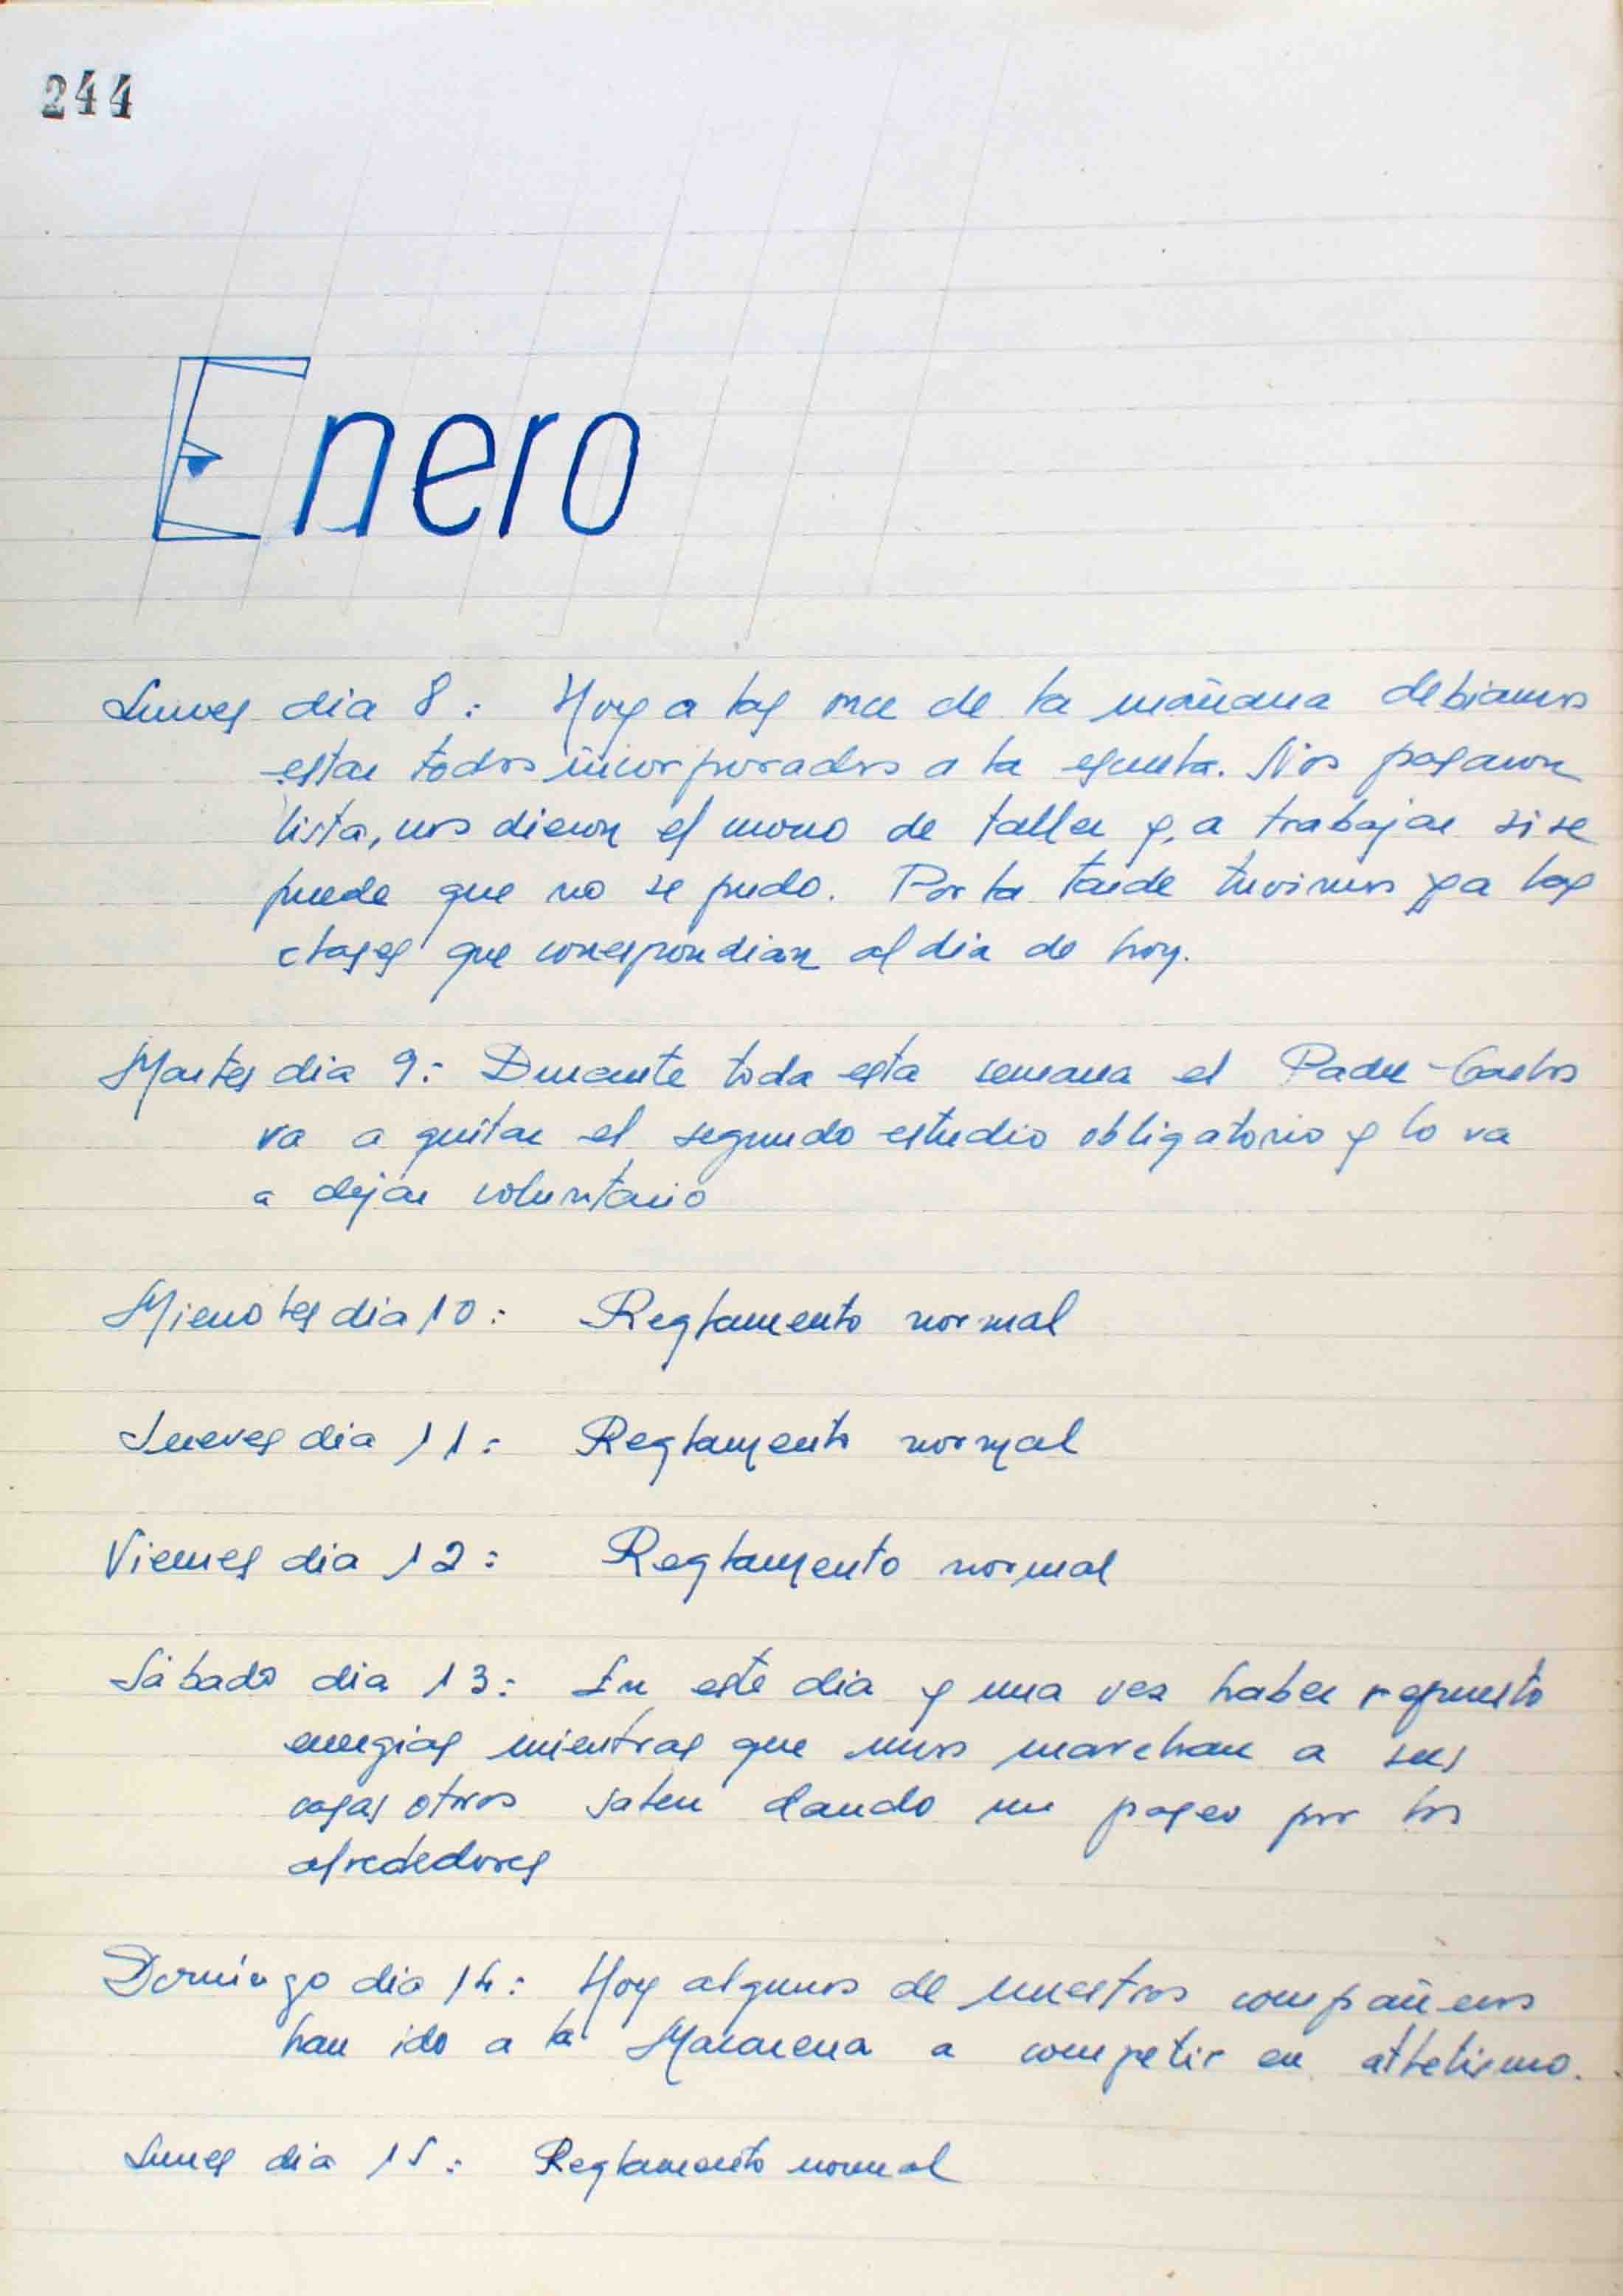 244
Enero
Lunes dia 8: Hoy a las once de la mañana debiamos
estar todos incorporados a la escuela. Nos pasaron
lista, nos dieron el mono de taller y, a trabajar si se
puede que no se pudo. Por la tarde tuvimos ya las
clases que correspondian al dia de hoy.
Martes dia 9: Durante toda esta semana el Padre Carlos
va a quitar el segundo estudio obligatorio y lo va
a dejar voluntario
Miercoles dia 10: Reglamento normal
Jueves dia 11: Reglamento normal
Viernes dia 12: Reglamento normal
Sábado dia 13: En este dia y una vez haber repuesto
energias mientras que unos marchan a sus
casas otros salen dando un paseo por los
alrededores
Domingo dia 14: Hoy algunos de nuestros compañeros
han ido a la Macarena a competir en atletismo.
Lunes dia 15: Reglamento normal